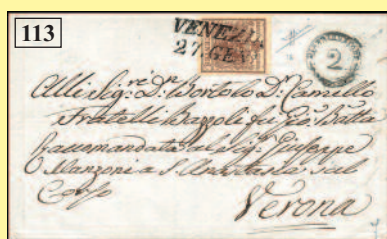 113
VENEZIA
27 GEN.
2
Alli Sig.ri D.n Bortolo D.r Camillo
Fratelli Bazzoli fu Gio. Batta
Raccomandata al Sig. Giuseppe
Manzoni a S. Anastasia sul
Corso
Verona